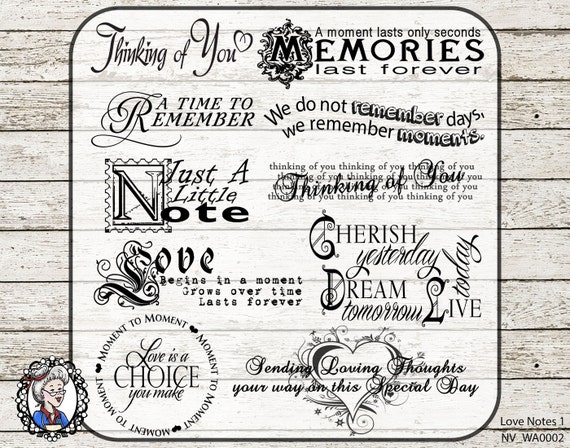 Thinking of You
A moment lasts only seconds
MEMORIES
last forever
A TIME TO
REMEMBER
We do not remember days,
we remember moments.
Just A
Little
Note
thinking of you thinking of you thinking of you
thinking of you thinking of you thinking of you
Thinking of You
thinking of you thinking of you thinking of you
thinking of you thinking of you thinking of you
Love
Begins in a moment
Grows over time
Lasts forever
CHERISH
yesterday
DREAM
tomorrow
LIVE
today
MOMENT TO MOMENT
MOMENT TO MOMENT
MOMENT TO MOMENT
Love is a
CHOICE
you make
Sending Loving Thoughts
your way on this Special Day
Love Notes 1
NV_WA0002